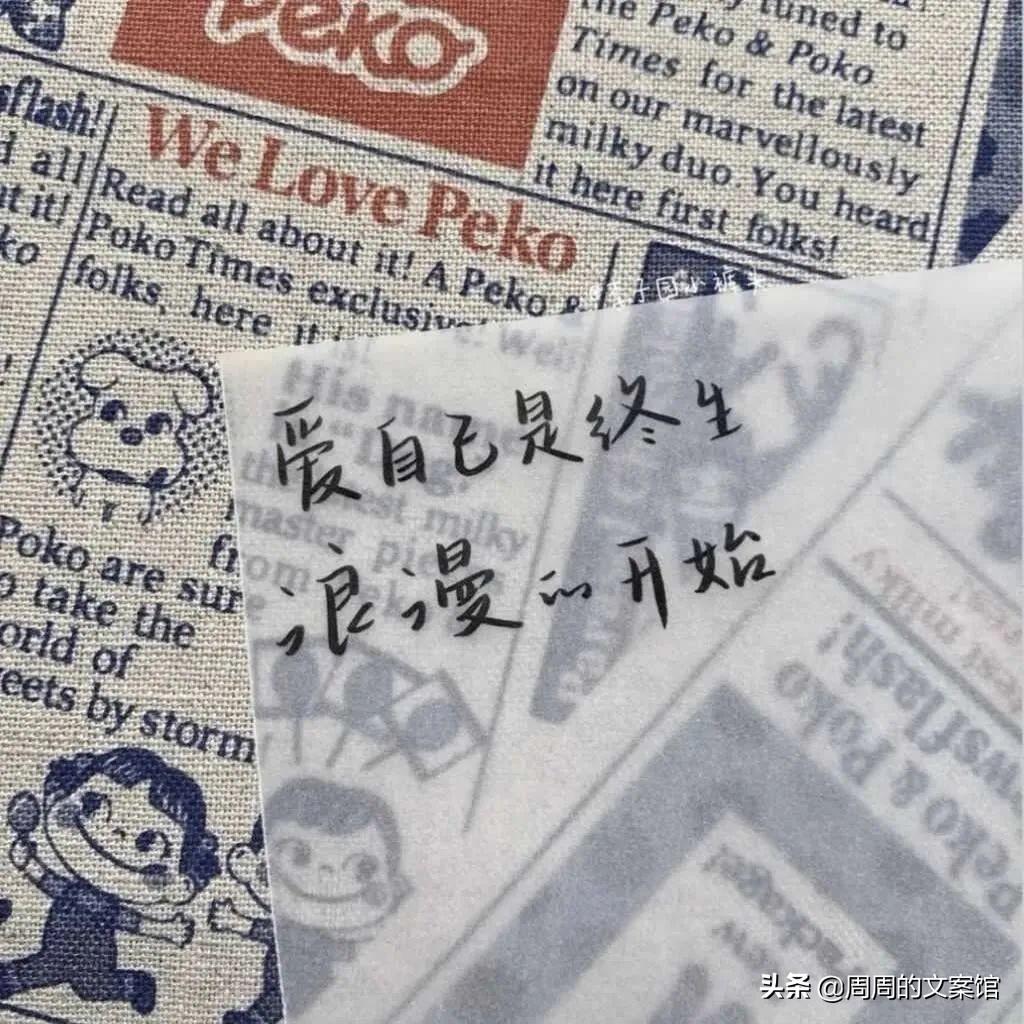 Peko
the Peko & Poko
Times for the latest
on our marvellously
milky duo. You heard
it here first folks!
We Love Peko
Read all about it! A Peko &
Poko Times exclusive! Well
folks, here it is!
sflash!
all
ut it!
ko
His name
Poko are sure
to take the
world of
sweets by storm
爱自己是终生
浪漫的开始
Peko & Poko
wsflash!
头条 @周周的文案馆